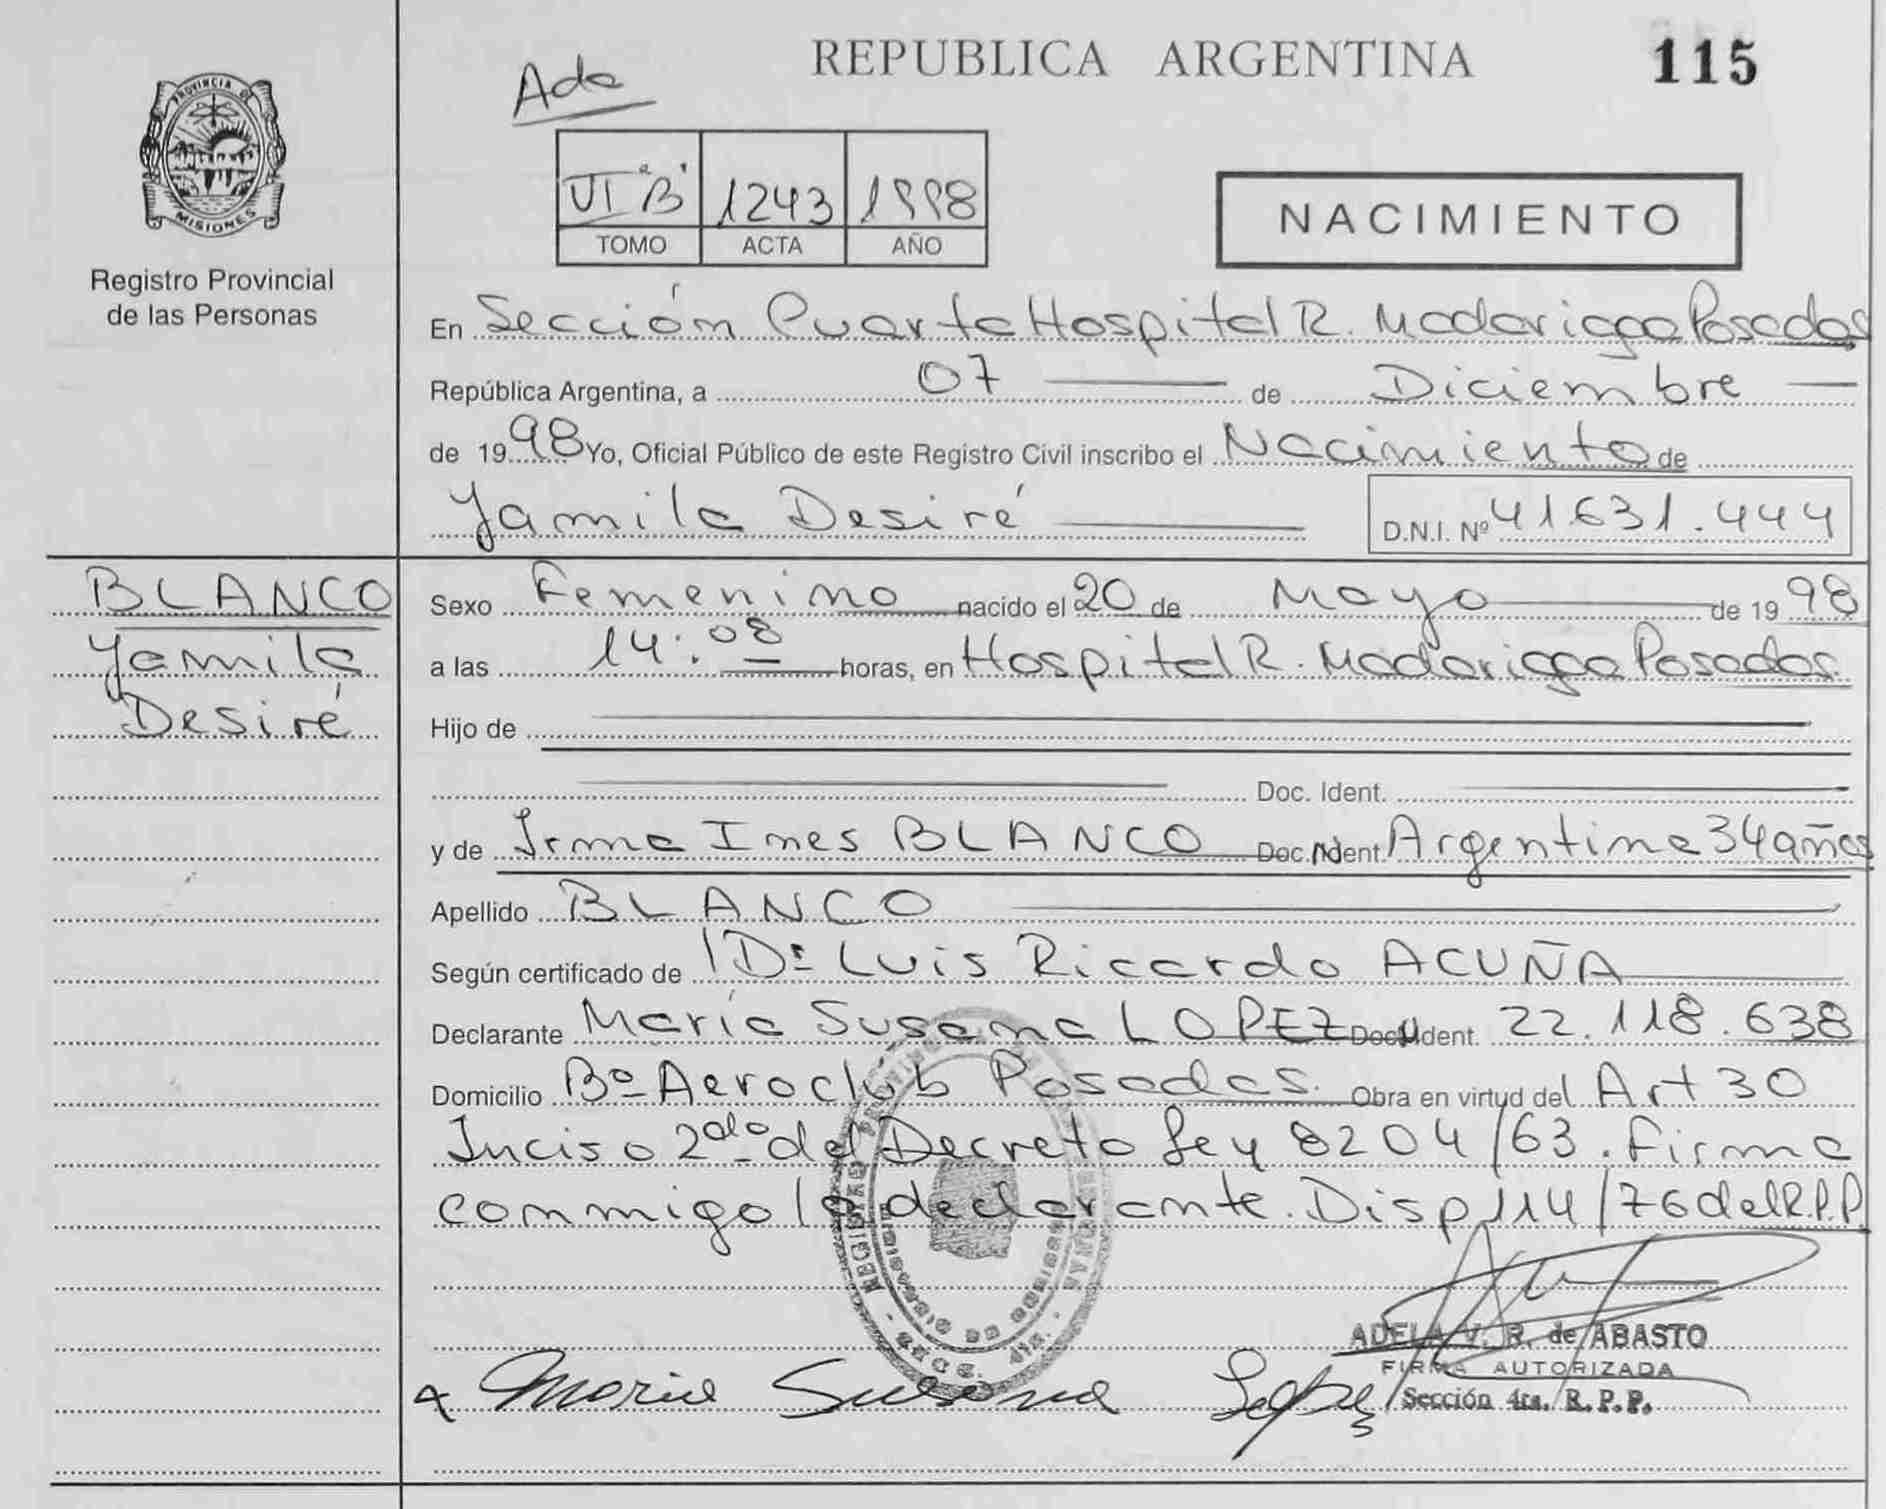 REPUBLICA ARGENTINA
115
Ada
PROVINCIA DE
MISIONES
Registro Provincial
de las Personas
VI "B" 1243 1998
TOMO ACTA AÑO
NACIMIENTO
En Sección Cuarta Hospital R. Madariaga Posadas
República Argentina, a 07 de Diciembre
de 1998 Yo, Oficial Público de este Registro Civil inscribo el Nacimiento de
Yamila Desiré
D.N.I. Nº 41.631.444
BLANCO
Yamila
Desiré
Sexo Femenino nacido el 20 de Mayo de 1998
a las 14:08 horas, en Hospital R. Madariaga Posadas.
Hijo de
Doc. Ident.
y de Irma Ines BLANCO Doc. Ident. Argentina 34 años
Apellido BLANCO
Según certificado de Dr Luis Ricardo ACUÑA
Declarante María Susana LOPEZ Doc. Ident. 22.118.638
Domicilio Bº Aeroclub Posadas. Obra en virtud del Art 30
Inciso 2do del Decreto Ley 8204/63. Firma
conmigo la declarante. Disp 114/76 del R.P.P.
ADELA V. R. de ABASTO
FIRMA AUTORIZADA
Sección 4ta. R. P. P.
Maria Susana Lopez